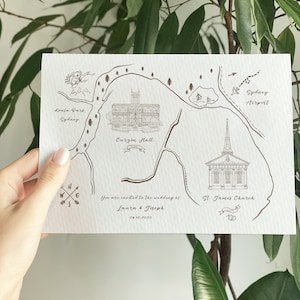 Koala Park
Sydney
Curzon Hall
Sydney
Airport
N
W E
S
St. James Church
You are invited to the wedding of
Laura & Joseph